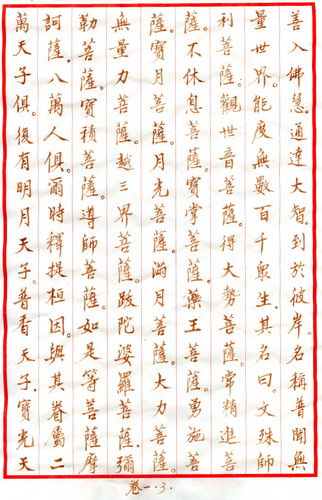 善入佛慧。通達大智。到於彼岸。名稱普聞無
量世界。能度無數百千眾生。其名曰。文殊師
利菩薩。觀世音菩薩。得大勢菩薩。常精進菩
薩。不休息菩薩。寶掌菩薩。藥王菩薩。勇施菩
薩。寶月菩薩。月光菩薩。滿月菩薩。大力菩薩。
無量力菩薩。越三界菩薩。跋陀婆羅菩薩。彌
勒菩薩。寶積菩薩。導師菩薩。如是等菩薩摩
訶薩。八萬人俱。爾時釋提桓因。與其眷屬二
萬天子俱。復有明月天子。普香天子。寶光天
卷一.3.